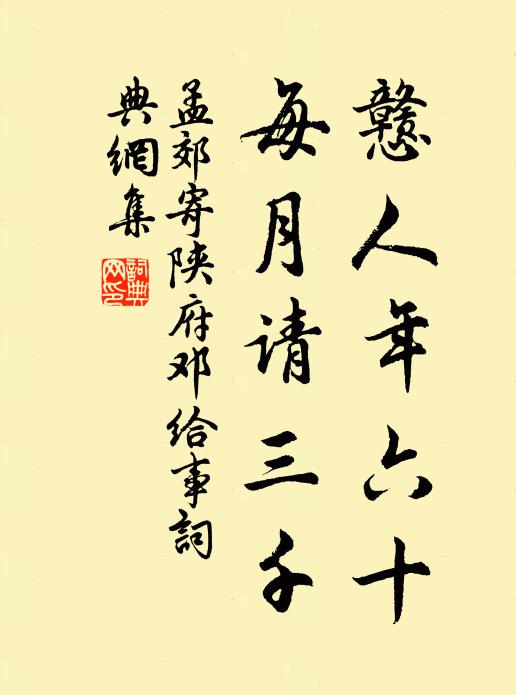 戆人年六十
每月请三千
孟郊寄陕府邓给事詞
典網集
詞典网印